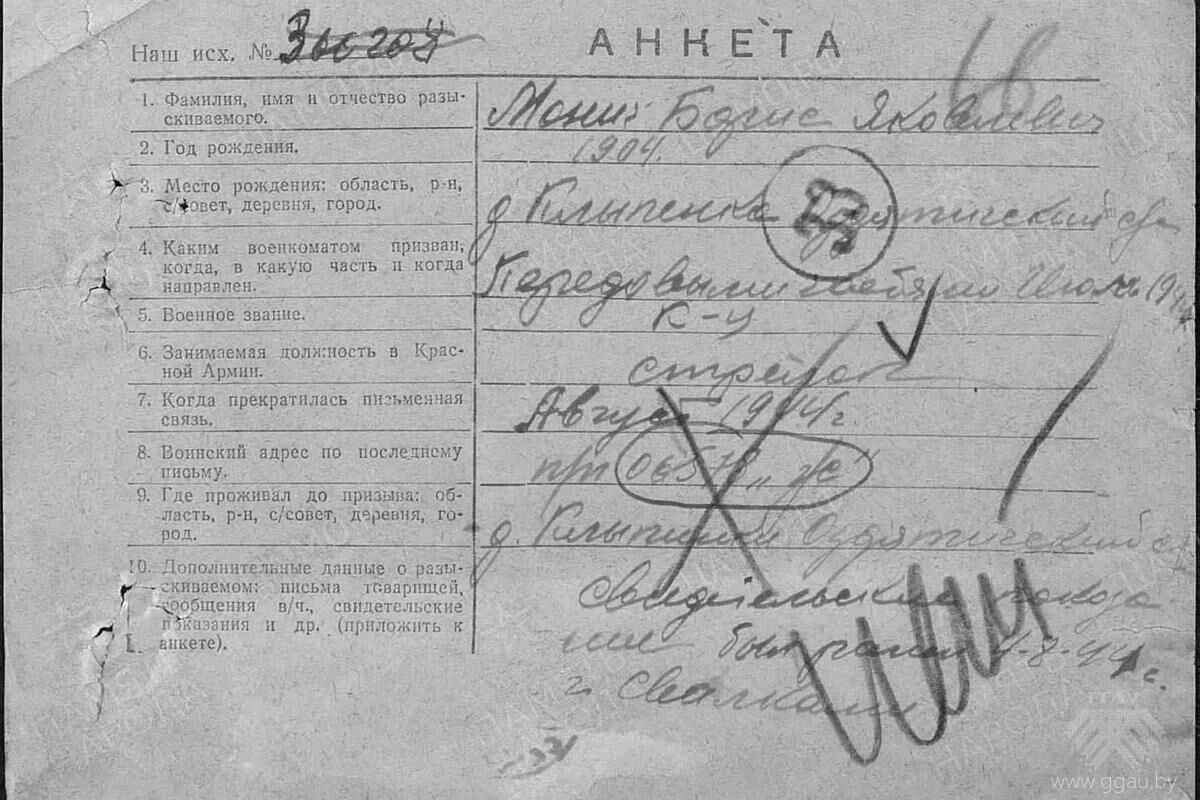 Наш исх. №
АНКЕТА
1. Фамилия, имя и отчество разы-
скиваемого.
Борис Яковлевич
2. Год рождения.
1904.
3. Место рождения: область, р-н,
с/совет, деревня, город.
д
4. Каким военкоматом призван,
когда, в какую часть и когда
направлен.
Передовыми Июль 1944
5. Военное звание.
к-ц
6. Занимаемая должность в Крас-
ной Армии.
стрелок
7. Когда прекратилась письменная
связь.
Август 1944 г.
8. Воинский адрес по последнему
письму.
п/п 06578 „ж"
9. Где проживал до призыва: об-
ласть, р-н, с/совет, деревня, го-
род.
д. Оздятический с
10. Дополнительные данные о разы-
скиваемом: письма товарищей,
сообщения в/ч., свидетельские
показания и др. (приложить к
анкете).
Свидетельские показа
ние был ранен 4-8-44 г.
г.
ГГАУ
www.ggau.by